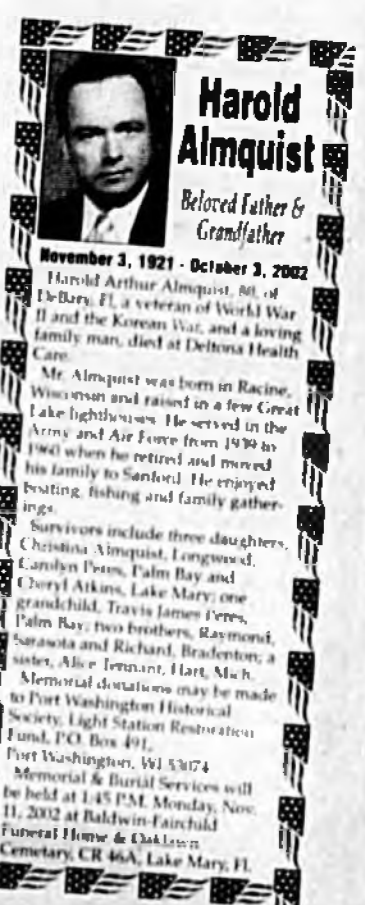 Harold
Almquist
Beloved Father &
Grandfather
November 3, 1921 - October 3, 2002
Harold Arthur Almquist, 80, of
DeBary, Fl, a veteran of World War
II and the Korean War, and a loving
family man, died at Deltona Health
Care.
Mr. Almquist was born in Racine,
Wisconsin and raised in a few Great
Lake lighthouses. He served in the
Army and Air Force from 1939 to
1960 when he retired and moved
his family to Sanford. He enjoyed
boating, fishing and family gather-
ings.
Survivors include three daughters,
Christina Almquist, Longwood,
Carolyn Peres, Palm Bay and
Cheryl Atkins, Lake Mary; one
grandchild, Travis James Peres,
Palm Bay; two brothers, Raymond,
Sarasota and Richard, Bradenton; a
sister, Alice Tennant, Hart, Mich.
Memorial donations may be made
to Port Washington Historical
Society, Light Station Restoration
Fund, P.O. Box 491,
Port Washington, WI 53074
Memorial & Burial Services will
be held at 1:45 P.M. Monday, Nov.
11, 2002 at Baldwin-Fairchild
Funeral Home & Oaklawn
Cemetary, CR 46A, Lake Mary, Fl.